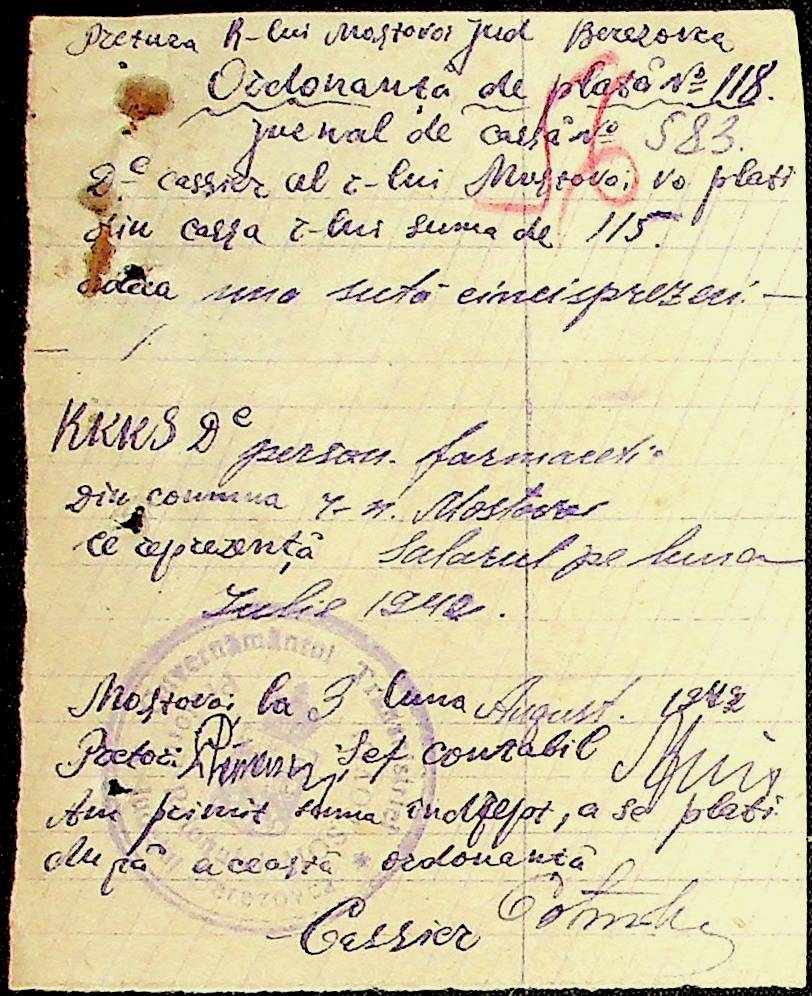 Pretura R-lui Mostovoi Jud Berezovca
Ordonanță de plată № 118.
Jurnal de cassă № 583.
56
D.e cassier al r-lui Mostovoi va plăti
din cassa r-lui suma de 115.
adeca una sută cincisprezeci. —
KKKS De person. farmaceti-
Din comuna r-n. Mostovoe
ce reprezentă Salarul pe luna
Iulie 1942.
Mostovoi, la 3 luna August. 1942
Pretor: Șef contabil
Am primit suma îndrept, a se plati
după această ordonanță
Cassier
Guvernământul Transnistriei